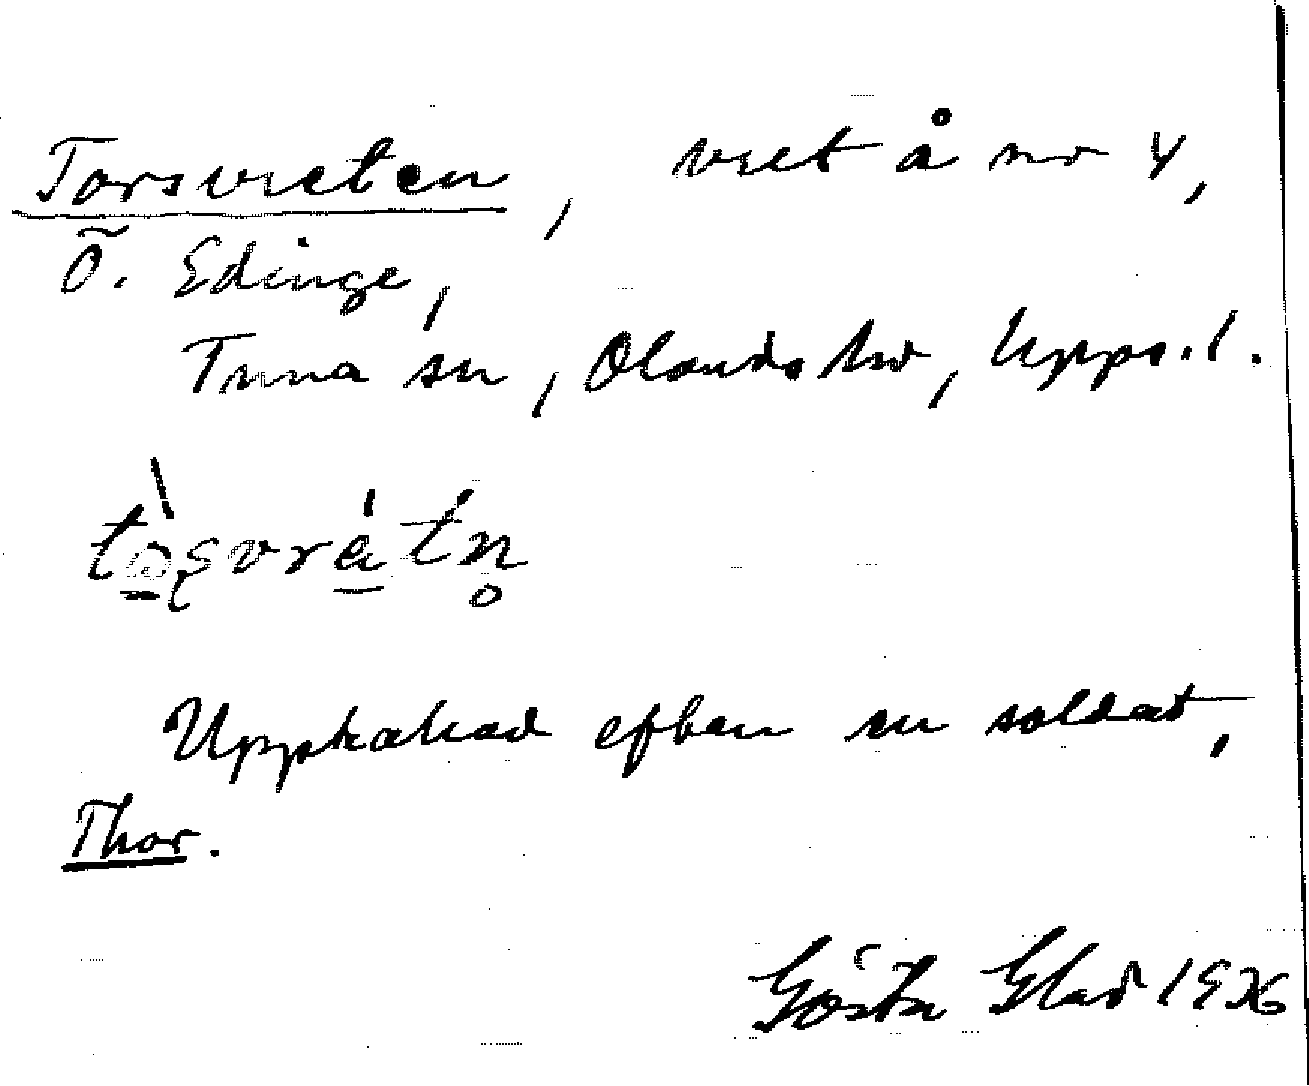 Torsvreten, vret å nr 4,
Ö. Edinge,
Tuna sn, Olands hd, Upps. l.
Uppkallad efter en soldat,
Thor.
Gösta Glad 1936